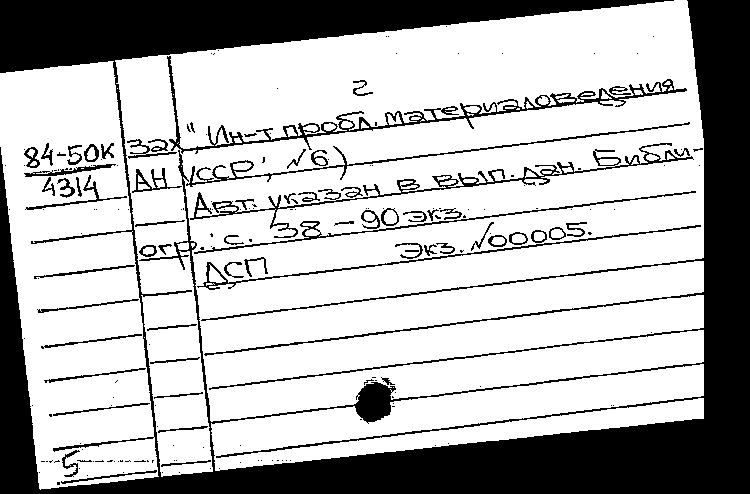 2
84-50К зах", Ин-т пробл. материаловедения
4314 АН УССР; №6)
Авт. указан в вып. дан. Библи-
огр.: с. 38. - 90 экз.
ДСП Экз. №00005.
5